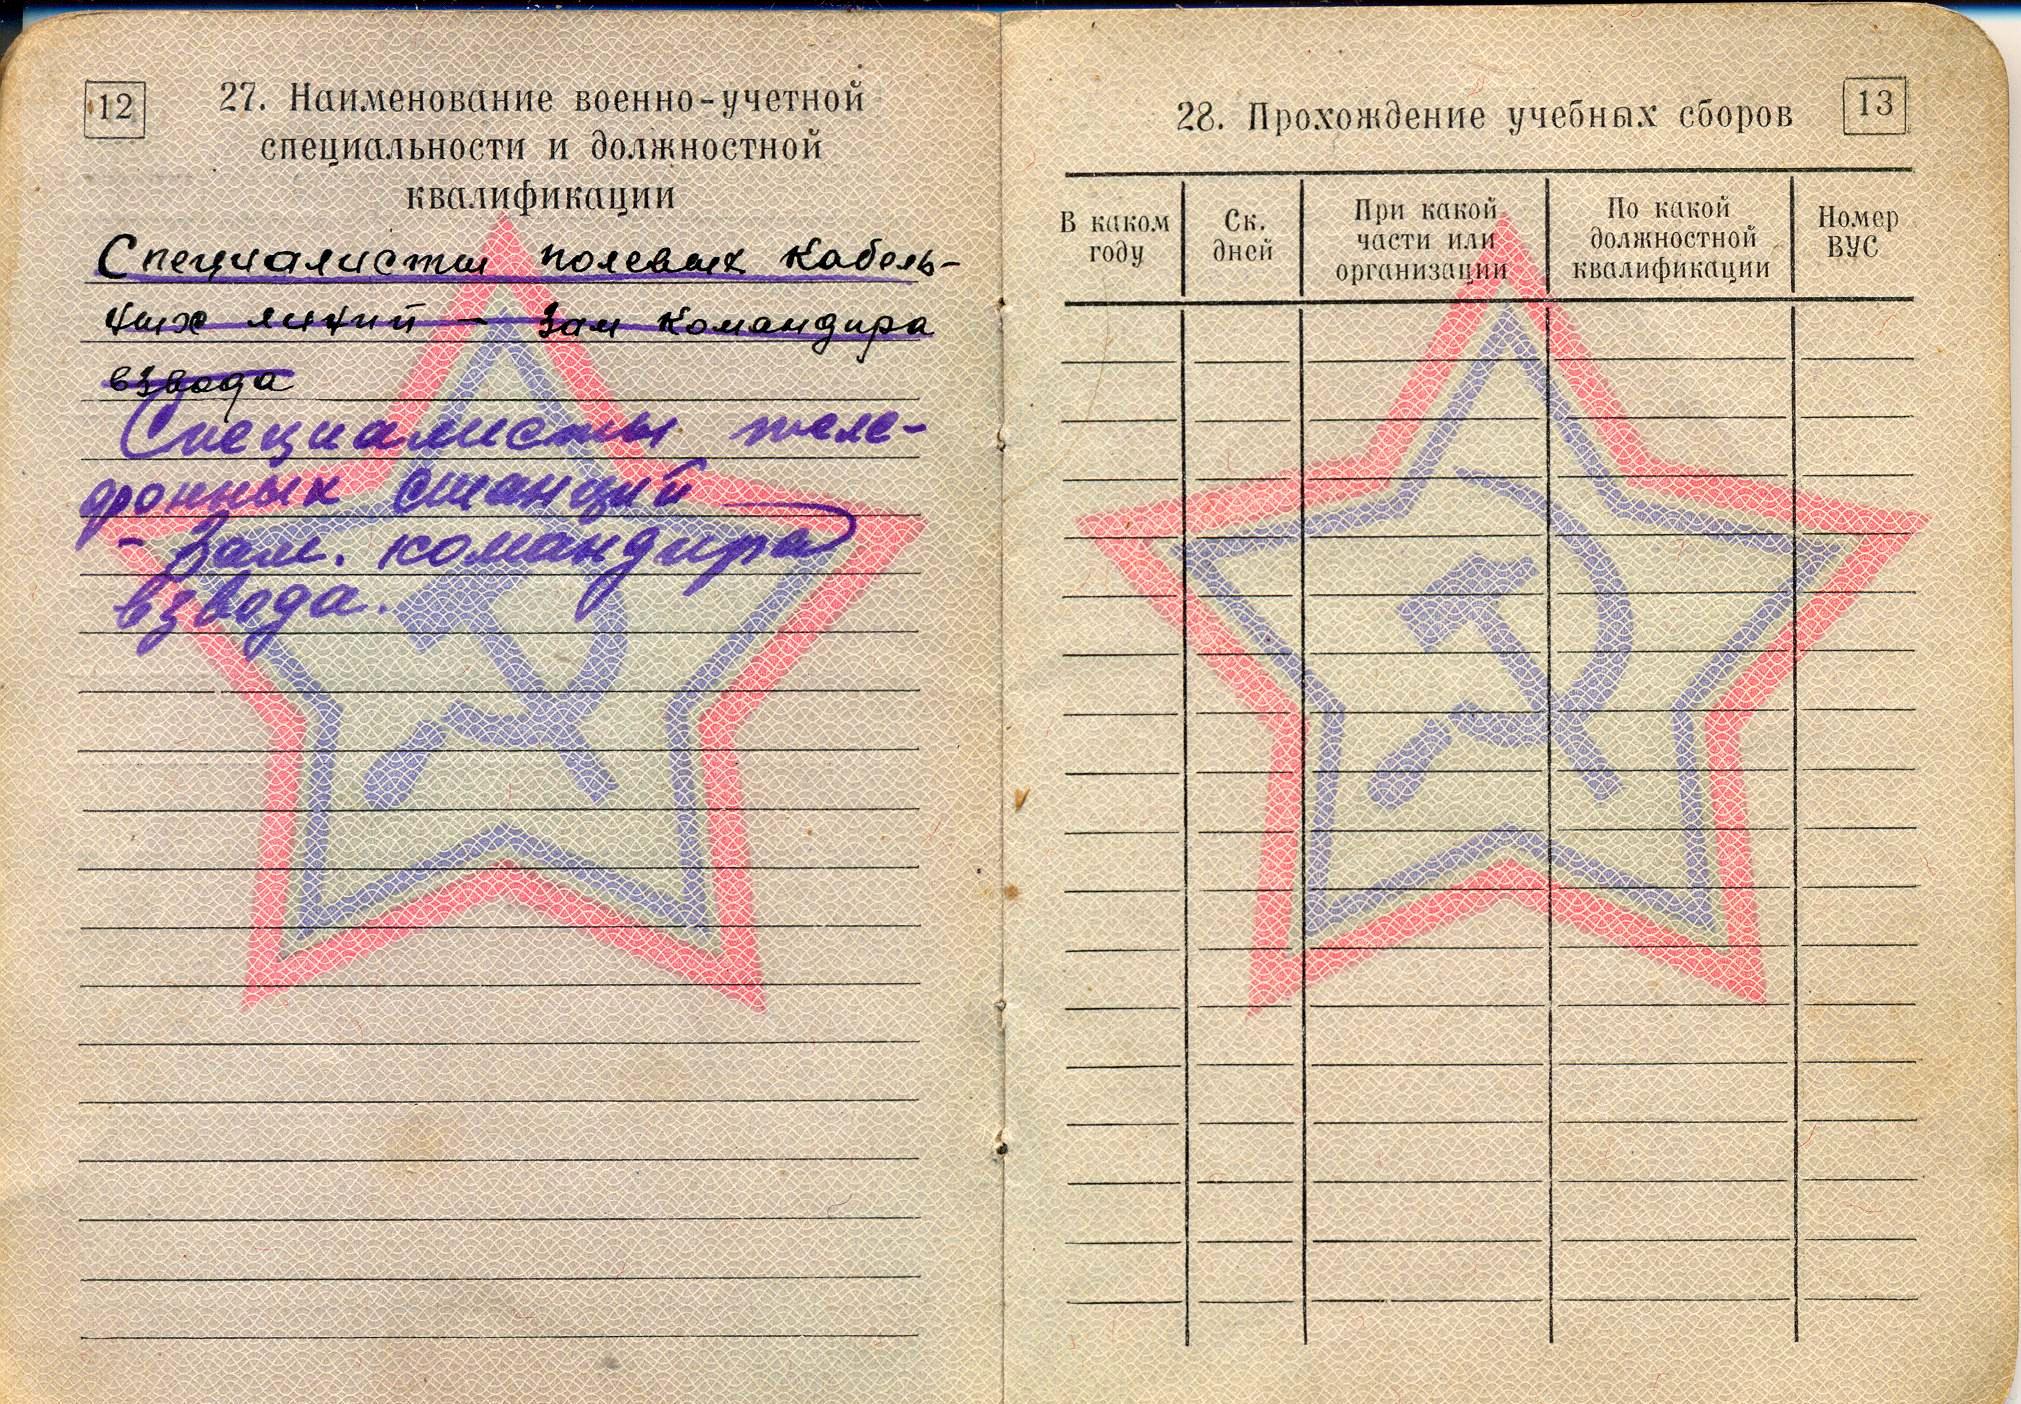 12
27. Наименование военно-учетной
специальности и должностной
квалификации
Специалисты полевых кабель-
ных линий - Зам командира
взвода
Специалисты теле-
фонных станций
- Зам. командира
взвода.
28. Прохождение учебных сборов
13
В каком
году
Ск.
дней
При какой
части или
организации
По какой
должностной
квалификации
Номер
ВУС